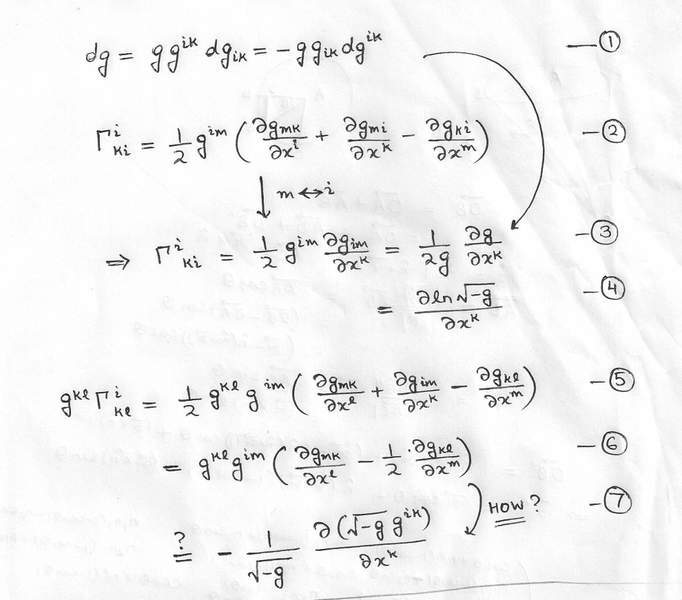 dg = g g^{ik} dg_{ik} = - g g_{ik} dg^{ik} —①
Γ^i_{ki} = 1/2 g^{im} (∂g_{mk}/∂x^i + ∂g_{mi}/∂x^k − ∂g_{ki}/∂x^m) —②
↓ m↔i
⇒ Γ^i_{ki} = 1/2 g^{im} ∂g_{im}/∂x^k = 1/2g ∂g/∂x^k —③
= ∂ln√-g/∂x^k —④
g^{kl} Γ^i_{kl} = 1/2 g^{kl} g^{im} (∂g_{mk}/∂x^l + ∂g_{im}/∂x^k − ∂g_{kl}/∂x^m) —⑤
= g^{kl} g^{im} (∂g_{mk}/∂x^l − 1/2 · ∂g_{kl}/∂x^m) —⑥
?= − 1/√-g ∂(√-g g^{ik})/∂x^k HOW? —⑦